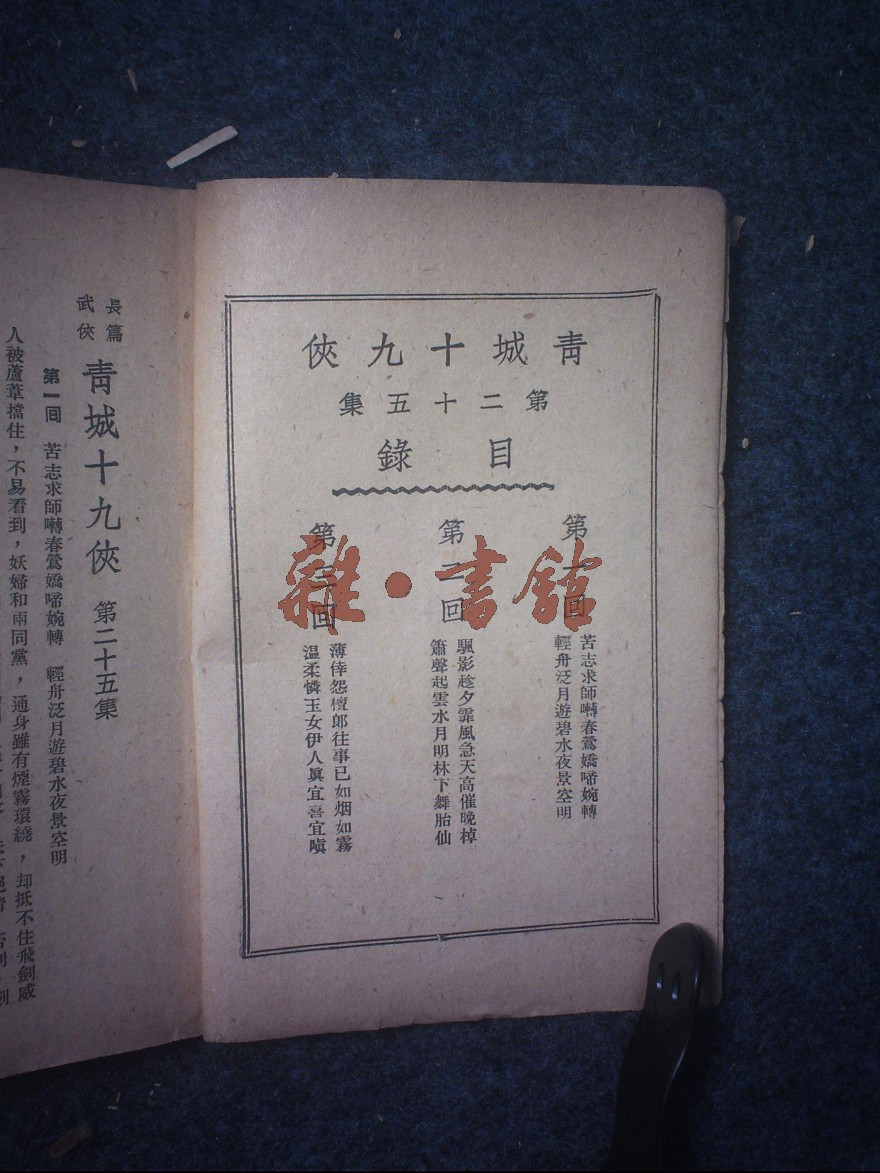 青城十九俠
第二十五集
目錄
第一回
苦志求師囀春鶯嬌啼婉轉
輕舟泛月遊碧水夜景空明
第二回
颿影趁夕霏風急天高催晚棹
簫聲起雲水月明林下舞胎仙
第三回
薄倖怨檀郎往事已如烟如霧
温柔憐玉女伊人眞宜喜宜嗔
雜·書館
長篇
武俠
青城十九俠 第二十五集
第一回 苦志求師囀春鶯嬌啼婉轉 輕舟泛月遊碧水夜景空明
人被蘆葦擋住，不易看到，妖婦和兩同黨，通身雖有煙霧環繞，却抵不住飛劍威